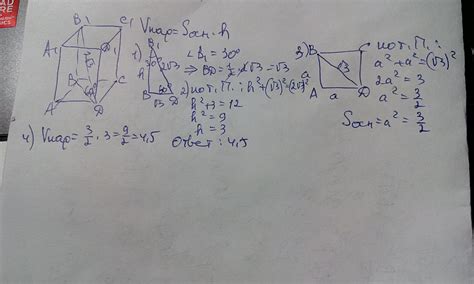 B₁ C₁
A₁ D₁
B C
A D
Vпар = Sосн. h
1) B₁
30° 2√3
B √3 D
∠B₁ = 30°
⇒ BD = 1/2 · 2√3 = √3
2) по т. П.: h² + (√3)² = (2√3)²
h² + 3 = 12
h² = 9
h = 3
3) B C
a √3
A a D
по т. П.:
a² + a² = (√3)²
2a² = 3
a² = 3/2
Sосн = a² = 3/2
4) Vпар = 3/2 · 3 = 9/2 = 4,5
Ответ: 4,5